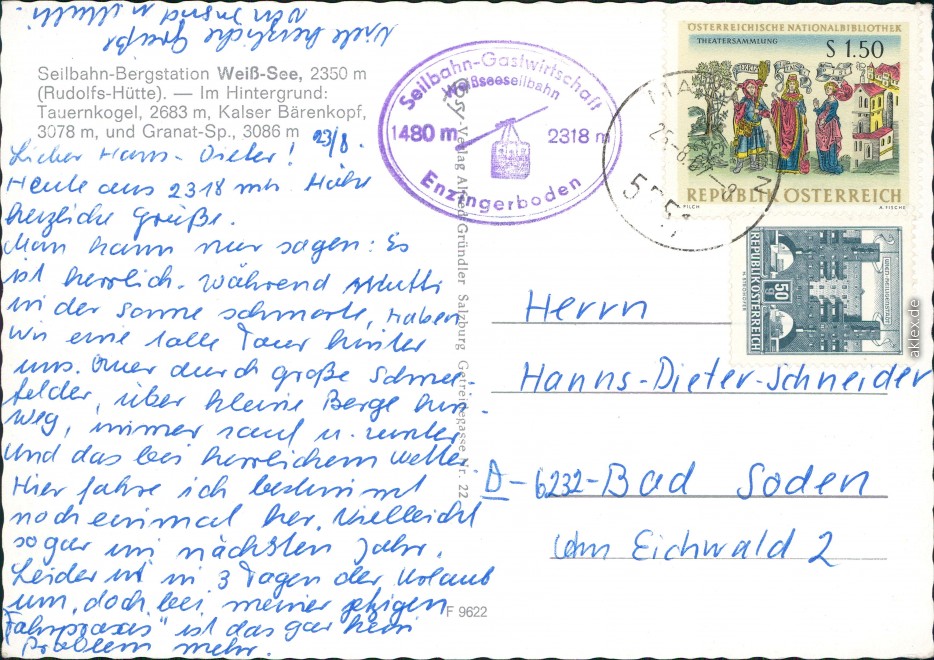 Seilbahn-Bergstation Weiß-See, 2350 m
(Rudolfs-Hütte). — Im Hintergrund:
Tauernkogel, 2683 m, Kalser Bärenkopf,
3078 m, und Granat-Sp., 3086 m
23/8.
Lieber Hans-Dieter!
Heute aus 2318 mtr Höhe
herzliche Grüße.
Man kann nur sagen: Es
ist herrlich. Während Mutti
in der Sonne schmorte, haben
wir eine tolle Tour hinter
uns. Quer durch große Schnee
felder, über kleine Berge hin-
weg, immer rauf u. runter
und das bei herrlichem Wetter.
Hier fahre ich bestimmt
noch einmal her, vielleicht
sogar im nächsten Jahr.
Leider ist in 3 Tagen der Urlaub
um, doch bei meiner jetzigen
"Fahrpraxis" ist das gar kein
Problem mehr.
Viele herzliche Grüße
von
Mutti.
Seilbahn-Gastwirtschaft
Weißseeseilbahn
1480 m
2318 m
Enzingerboden
Verlag Alfred Gründler Salzburg Getreidegasse Nr. 22
F 9622
ÖSTERREICHISCHE NATIONALBIBLIOTHEK
THEATERSAMMLUNG
S 1.50
REPUBLIK ÖSTERREICH
A. PILCH
A. FISCHER
REPUBLIK ÖSTERREICH
50 g
Herrn
Hanns-Dieter Schneider
D-6232-Bad Soden
Am Eichwald 2
aklex.de